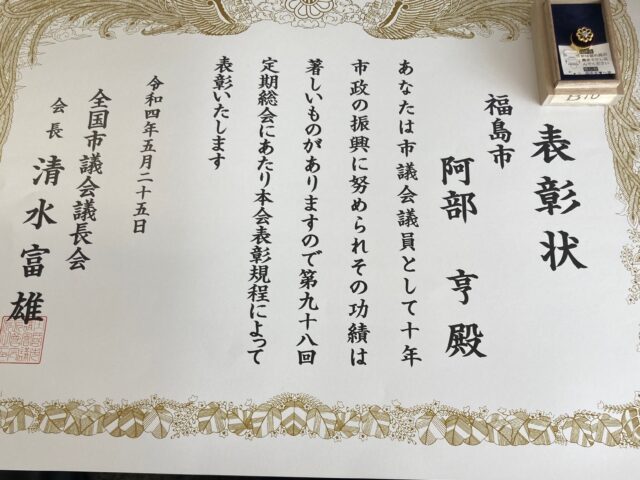 表彰状
福島市
阿部 亨 殿
あなたは市議会議員として十年
市政の振興に努められその功績は
著しいものがありますので第九十八回
定期総会にあたり本会表彰規程によって
表彰いたします
令和四年五月二十五日
全国市議会議長会
会長 清水富雄